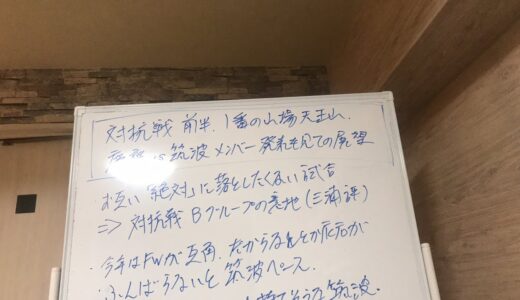 対抗戦 前半.1番の山場 天王山.
vs 筑波 メンバー 発表を見ての展望
お互い「絶対」に落としたくない試合
⇒ 対抗戦 Bグループの意地(三浦評)
・今年はFWが互角. だからうちとか
ふんばらないと 筑波ペース.
筑波.